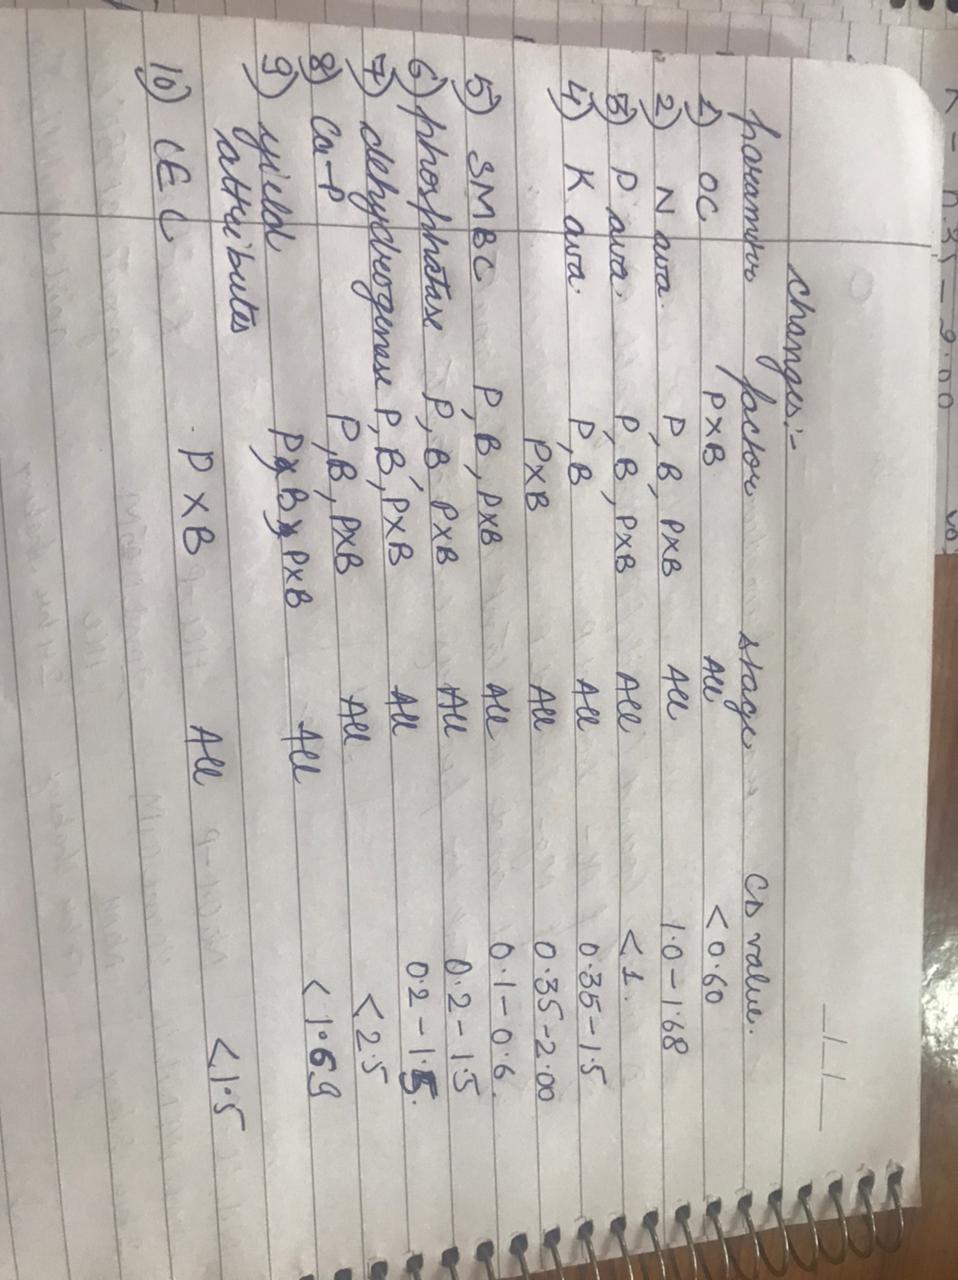 K - 0.35 - 2.00
__/__/__
changes:-
parameter factor stage CD value.
1) OC P×B All <0.60
2) N ava. P, B, P×B All 1.0-1.68
3) P ava. P, B, P×B All <1.
4) K ava. P, B All 0.35-1.5
P×B All 0.35-2.00
5) SMBC P, B, P×B All 0.1-0.6.
6) phosphatase P, B, P×B All 0.2-1.5
7) dehydrogenase P, B, P×B All 0.2-1.5.
8) Ca-P P, B, P×B All <2.5
9) yield P, B, P×B All <1.69
attributes
10) CEC P×B All <1.5